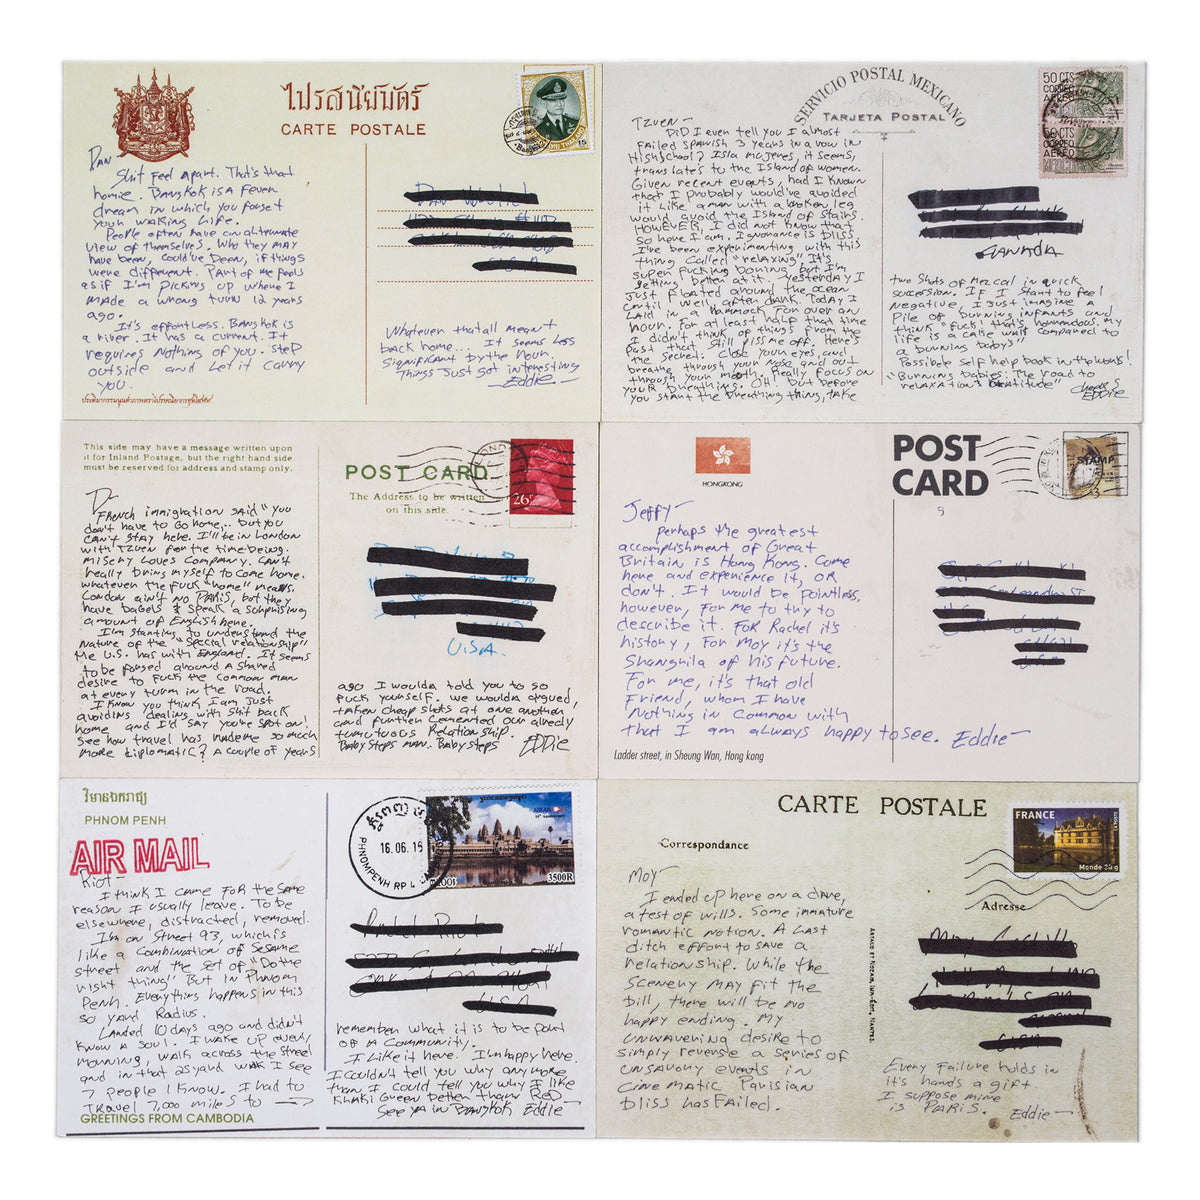 ไปรสนียบัตร์
CARTE POSTALE
15
Dan-
Shit Feel apart. That's that
homie. Bangkok is a Fever
dream in which you forget
your waking life.
People often have an alternate
view of themselves. Who they may
have been, could've been, if things
were different. Part of me feels
as if I'm picking up where I
made a wrong turn 12 years
ago.
It's effortless. Bangkok is
a river. It has a current. It
requires nothing of you. Step
outside and Let it carry
you.
U.S.A
Whatever that all meant
back home... It seems less
significant by the hour.
Things just got interesting
Eddie-
SERVICIO POSTAL MEXICANO
TARJETA POSTAL
50 CTS
CORREO
AEREO
50 CTS
CORREO
AEREO
MEXICO
Tzuen-
Did I ever tell you I almost
failed Spanish 3 years in a row in
Highschool? Isla Mujeres, it seems,
translates to the Island of women.
Given recent events, had I known
that I probably would've avoided
it like a man with a broken leg
would avoid the Island of Stairs.
However, I did not know that
so here I am. Ignorance is bliss
I've been experimenting with this
thing called "relaxing" It's
super fucking boring but I'm
getting better at it. Yesterday I
just floated around the ocean
until well after dark. Today I
laid in a hammock for over an
hour. For at least half that time
I didn't think of things from the
past that still piss me off. Here's
the secret: Close your eyes and
breathe through your nose and out
through your mouth. Really focus on
your breathing. Oh! but before
you start the breathing thing, take
CANADA
two shots of Mezcal in quick
succession. If I start to feel
negative, I just imagine a
pile of burning infants and
think "Fuck! that's horrendous. My
life is a cake walk compared to
a burning baby"
Possible self help book in the works!
"Burning Babies: The road to
relaxation & beatitude"
Cheers
Eddie
This side may have a message written upon
it for Inland Postage, but the right hand side
must be reserved for address and stamp only.
POST CARD
The Address to be written
on this side.
LONDON
26
D-
French immigration said "you
don't have to go home... but you
can't stay here. I'll be in London
with Tzuen for the time being.
Misery loves company. Can't
really bring myself to come home.
whatever the fuck "home" means.
London ain't no Paris, but they
have bagels & speak a surprising
amount of English here.
I'm starting to understand the
nature of the "special relationship"
the U.S. has with England. It seems
to be forged around a shared
desire to fuck the common man
at every turn in the road.
I know you think I am just
avoiding dealing with shit back
home and I'd say you're spot on!
See how travel has made me so much
more diplomatic? A couple of years
U.S.A.
ago I woulda told you to go
fuck yourself. We woulda argued,
taken cheap shots at one another
and further cemented our already
tumutuous relationship.
Baby steps man. Baby steps
Eddie
HONGKONG
POST
CARD
STAMP
Jeffy-
perhaps the greatest
accomplishment of Great
Britain is Hong Kong. Come
here and experience it, or
don't. It would be pointless,
however, for me to try to
describe it. For Rachel it's
history, For Moy it's the
Shanghila of his future.
For me, it's that old
friend, whom I have
nothing in common with
that I am always happy to see. Eddie-
Ladder street, in Sheung Wan, Hong kong
PHNOM PENH
AIR MAIL
16.06.15
PHNOMPENH RP
3500R
Riot-
I think I came for the same
reason I usually leave. To be
elsewhere, distracted, removed.
I'm on Street 93, which is
like a combination of Sesame
street and the set of "Do the
right thing" But in Phnom
Penh. Everything happens in this
50 yard Radius.
Landed 10 days ago and didn't
know a soul. I wake up every
morning, walk across the street
and in that 25 yard walk I see
7 people I know. I had to
travel 7,000 miles to →
GREETINGS FROM CAMBODIA
USA
remember what it is to be part
of a community.
I like it here. I'm happy here.
I couldn't tell you why anymore
than I could tell you why I like
Khaki Green better than Red
See ya in Bangkok Eddie-
CARTE POSTALE
Correspondance
FRANCE
Monde 20 g
Adresse
Moy-
I ended up here on a dare,
a test of wills. Some immature
romantic notion. A last
ditch effort to save a
relationship. While the
scenery may fit the
bill, there will be no
happy ending. My
unwavering desire to
simply reverse a series of
unsavory events in
cinematic Parisian
bliss has failed.
USA
Every failure holds in
it's hands a gift
I suppose mine
is PARIS.
Eddie-